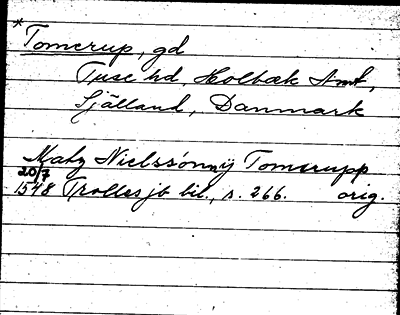 *
Tomerup, gd
Tuse hd, Holbæk Amt,
Själland, Danmark
Matz Nielssönn ÿ Tomerupp
20/7
1548 Trolles jb bil., s. 266. orig.